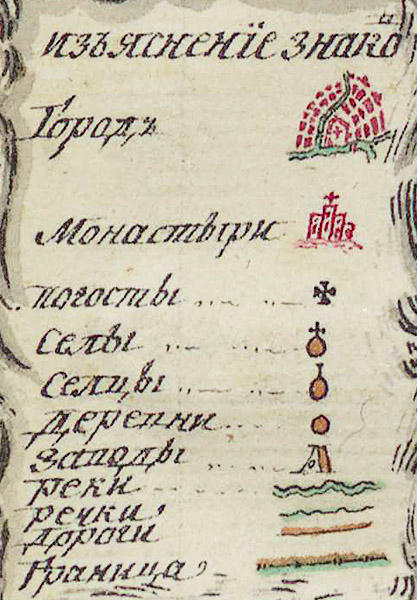 изъясненїе знако
Городъ
Монастыри
погосты
селы
селцы
деревни
заводы
реки
речки
дороги
Граница